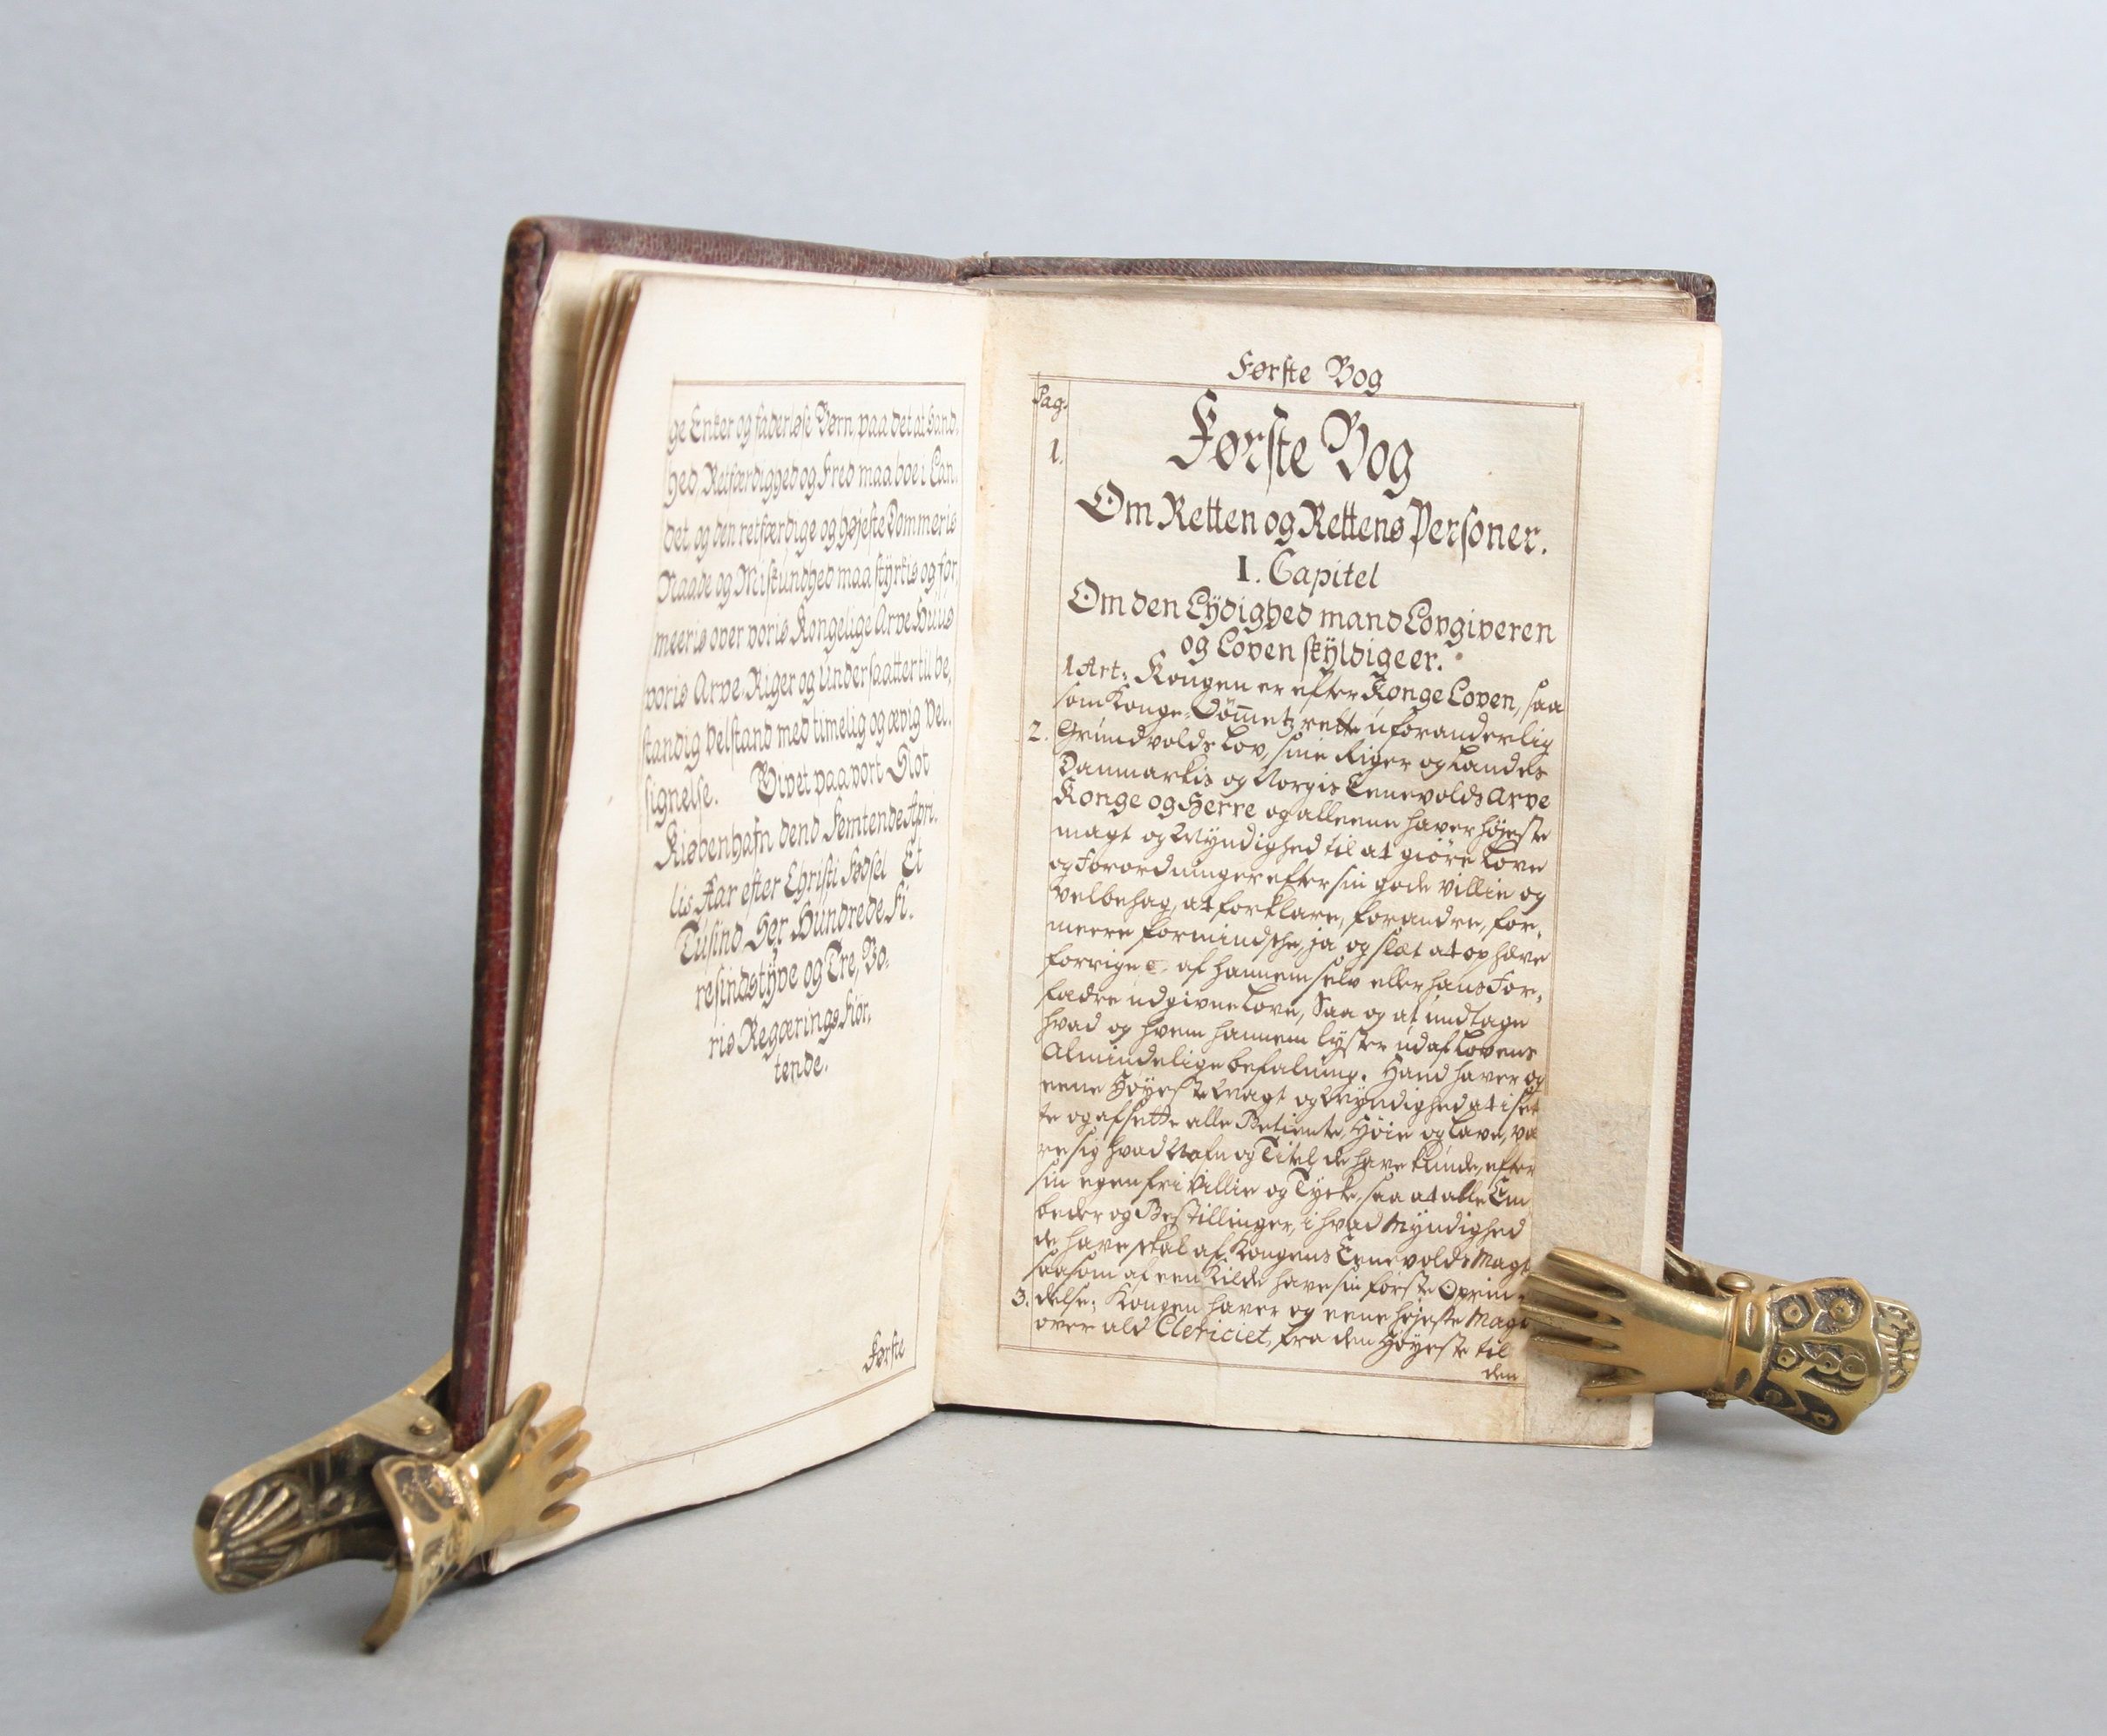 ge Enker og faderløse Børn, paa det at Sand,
hed, Retfærdighed og Fred maa boe i Lan,
det, og den retfærdige og højeste Dommeris
Naade og Miskundhed maa styrkis og for,
meeris over voris Kongelige Arve Huus
voris Arve-Riger og Undersaatter til be,
standig Velstand med timelig og ævig Vel,
signelse. Givet paa vort Slot
Kiøbenhafn dend Femtende Apri,
lis Aar efter Christi Fødsel Et
Tusind Sex Hundrede Fi,
resindstyve og Tre, Vo,
ris Regærings Fior,
tende.
Første
Første Bog
Pag:
1.
Første Bog
Om Retten og Rettens Personer.
I. Capitel
Om den Lydighed mand Lovgiveren
og Loven skyldig eer.
1 Art: Kongen er efter Konge Loven, saa
som Konge-Dömmetz rette uforanderlig
2. Grundvolds Lov, sine Riger og Landes
Danmarkis og Norgis Eenevolds Arve
Konge og Herre og alleene haver højeste
magt og Myndighed til at giöre Love
og Forordninger efter sin gode Villie og
Velbehag, at forklare, forandre, for,
meere formindsche, ja og slæt at ophæve
forrige af hannem selv eller hans For,
fædre udgivne Love, Saa og at undtage
hvad og hvem hannem lyster udaf Lovens
Almindelige befalning. Hand haver og
eene Høyeste Magt og Myndighed at iset
te og afsette alle Betiente, Høie og Lave, væ
re sig hvad Nafn og Titel de have kunde, efter
sin egen fri Villie og Tycke, saa at alle Em
beder og Bestillinger, i hvad Myndighed
de have skal af Kongens Eenevolds Magt
saasom af een Kilde have sin første Oprin,
3. delse; Kongen haver og eene højeste Magt
over ald Clericiet, fra den Høyeste til
den